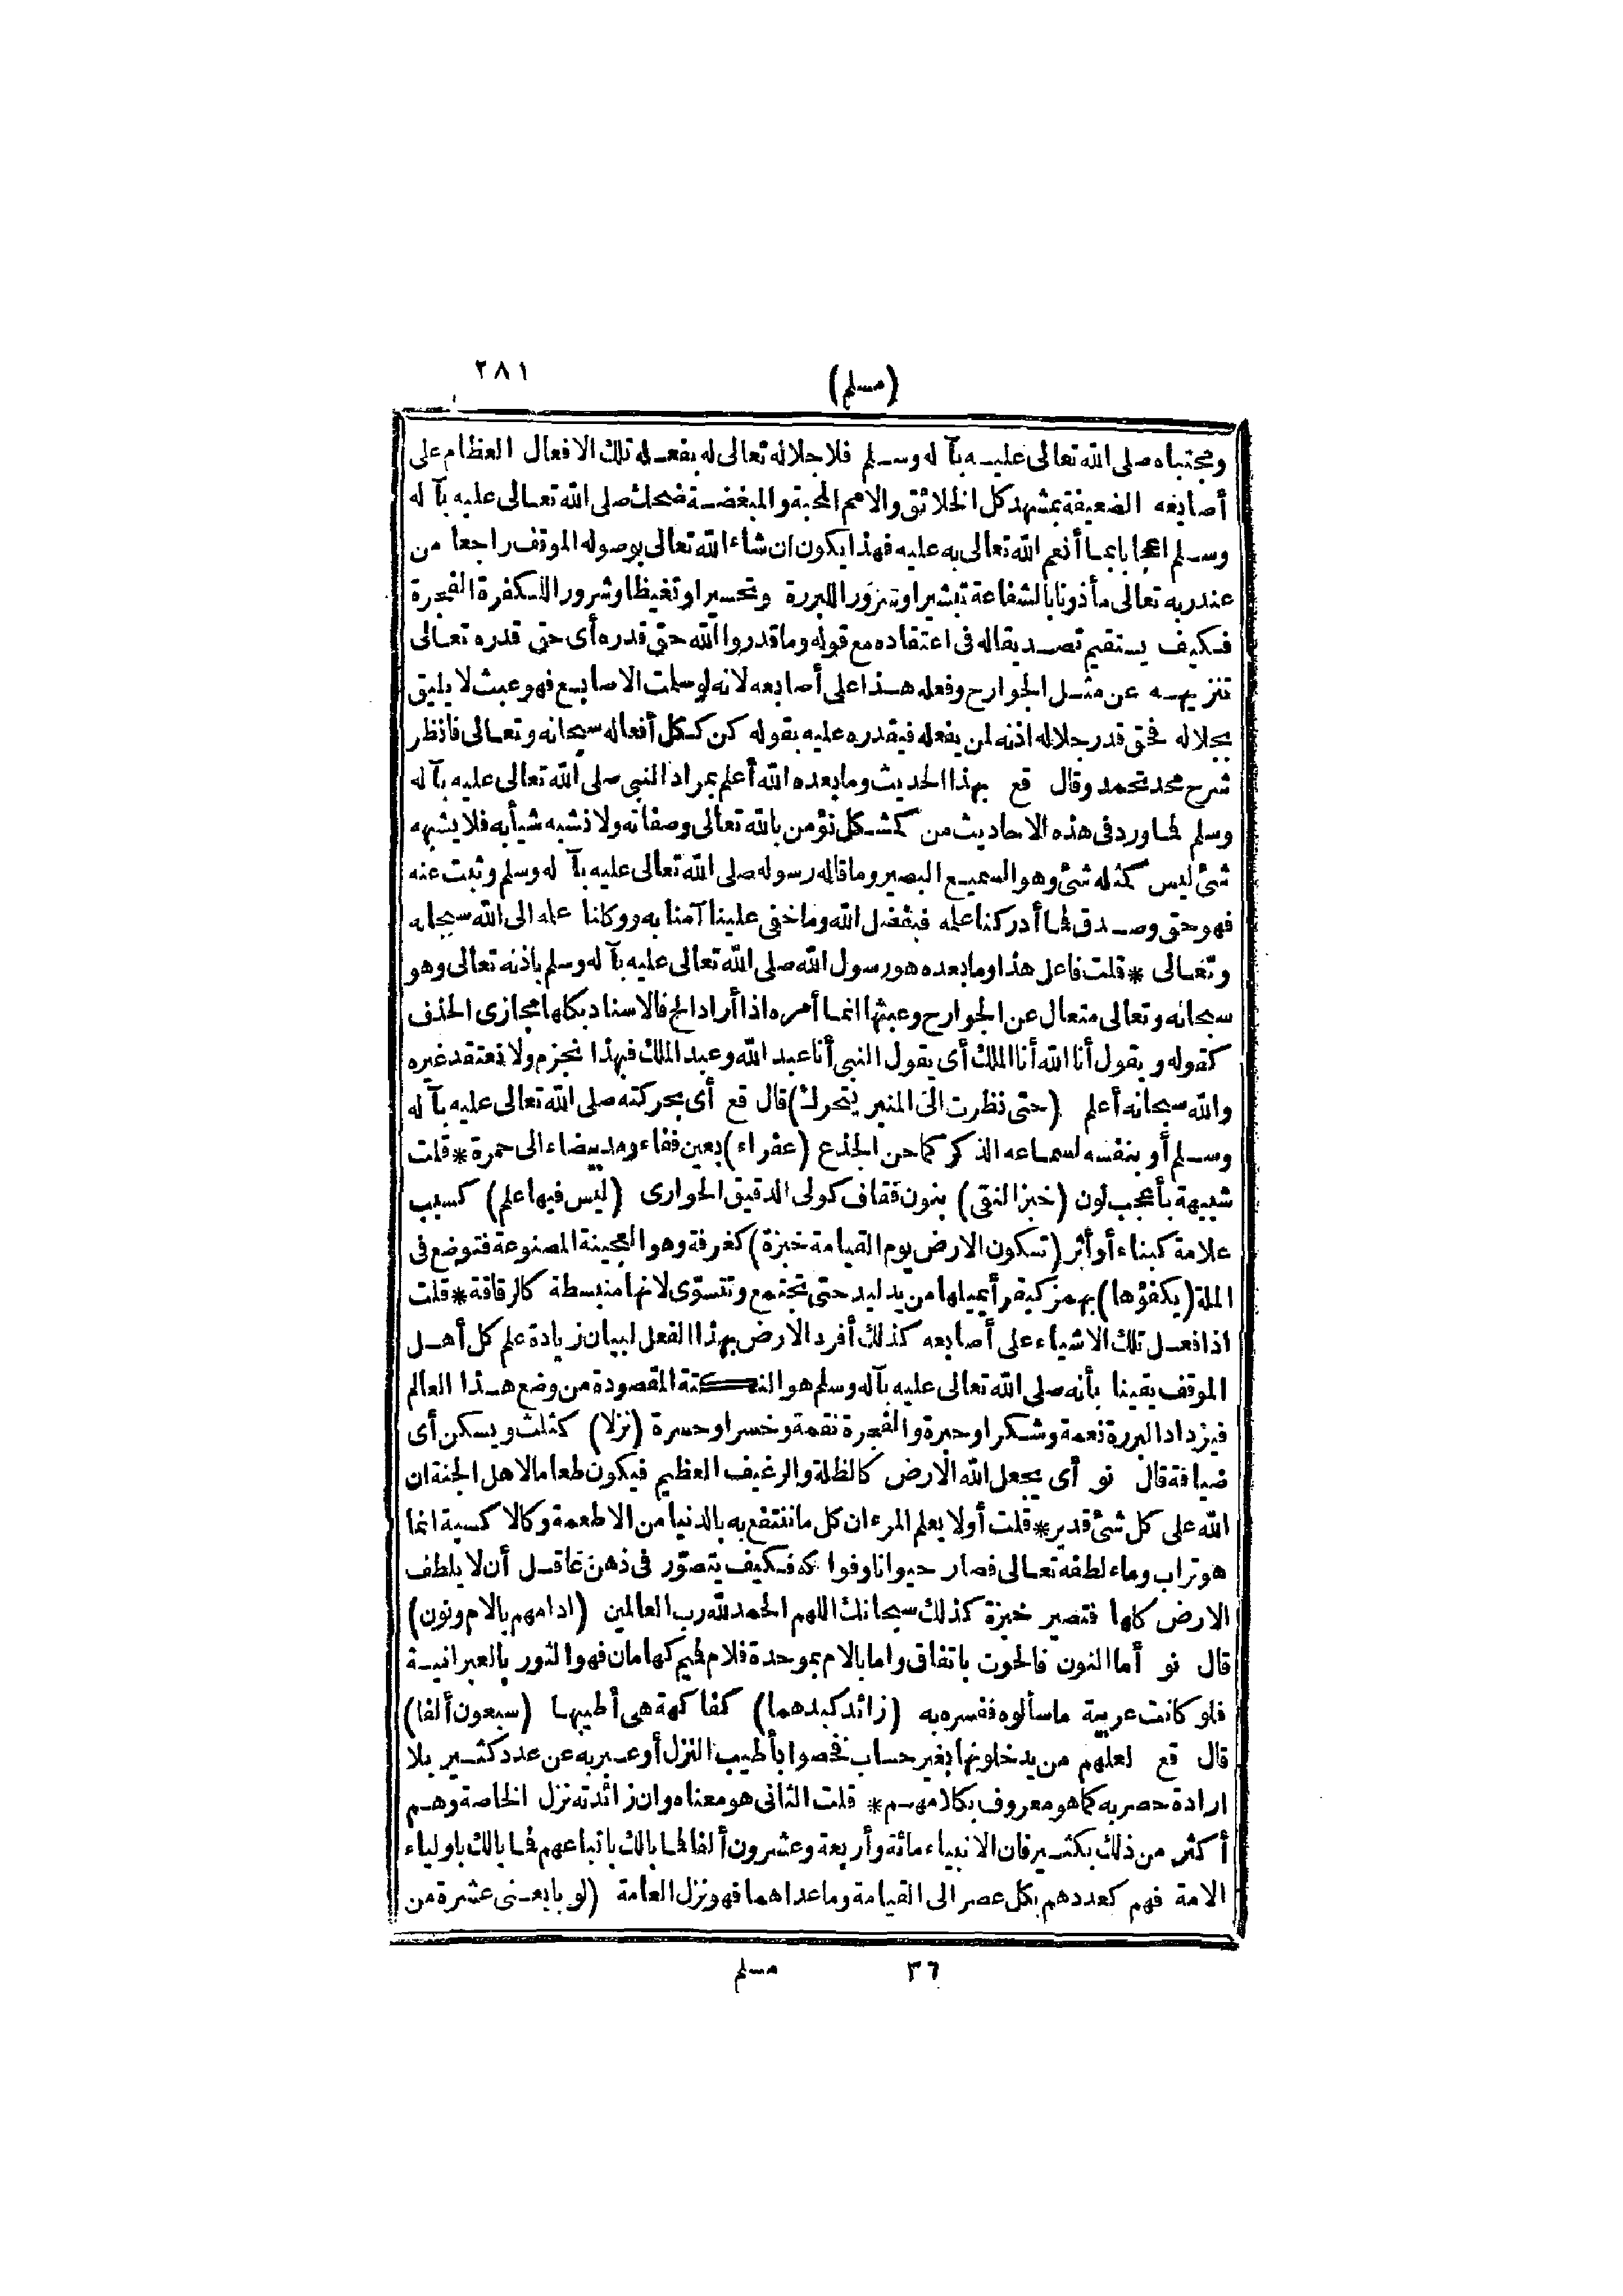 (مسلم) ٢٨١
ومجتباه صلى الله تعالى عليه بآله وسلم فلاجلاله تعالى له بفعله تلك الافعال العظام على
أصابعه الضعيفة بمشهد كل الخلائق والامم المحبة والمبغضة ضحك صلى الله تعالى عليه بآله
وسلم اعجابا بما أنعم الله تعالى به عليه فهذا يكون ان شاء الله تعالى بوصوله الموقف راجعا من
عند ربه تعالى مأذونا بالشفاعة تبشيرا وتنزورا للبررة وتحسيرا وتغيظا وشرورا للكفرة الفجرة
فكيف يستقيم تصديقاله فى اعتقاده مع قوله وما قدروا الله حق قدره أى حق قدره تعالى
تنزيهه عن مثل الجوارح وفعله هذا على أصابعه لانه لو سلمت الاصابع فهو عبث لا يليق
بجلاله فحق قدر جلاله اذنه لمن يفعله فيقدره عليه بقوله كن ككل أفعاله سبحانه وتعالى فانظر
شرح محد تحمد وقال قع بهذا الحديث وما بعده الله أعلم بمراد النبى صلى الله تعالى عليه بآله
وسلم فما ورد فى هذه الاحاديث من كشكل نؤمن بالله تعالى وصفاته ولا نشبه شيأ به فلا يشبهه
شئ ليس كمثله شئ وهو السميع البصير وما قاله رسوله صلى الله تعالى عليه بآله وسلم وثبت عنه
فهو حق وصدق فما أدركنا علمه فبفضل الله وما خفى علينا آمنا به ووكلنا علمه الى الله سبحانه
وتعالى * قلت فاعل هذا وما بعده هو رسول الله صلى الله تعالى عليه بآله وسلم باذنه تعالى وهو
سبحانه وتعالى متعال عن الجوارح وعبثها انما أمره اذا أراد الخ فالاسناد بكلها مجازى الحذف
كقوله ويقول أنا الله أنا الملك أى يقول النبى أنا عبد الله وعبد الملك فبهذا نجزم ولا نعتقد غيره
والله سبحانه أعلم (حتى نظرت الى المنبر يتحرك) قال قع أى بحركته صلى الله تعالى عليه بآله
وسلم أو بنفسه لسماعه الذكر كما حن الجذع (عفراء) بعين ففاء ومد بيضاء الى حمرة * قلت
شبيهة بأعجب لون (خبز النقى) بنون فقاف كولى الدقيق الحوارى (ليس فيها علم) كسبب
علامة كبناء أو أثر (تكون الارض يوم القيامة خبزة) كغرفة وهو العجينة المصنوعة فتوضع فى
الملة (يكفؤها) بهمز كيقرأ يميلها من يد ليد حتى تجتمع وتتسوّى لانها منبسطة كالرقاقة * قلت
اذا فعل تلك الاشياء على أصابعه كذلك أفرد الارض بهذا الفعل لبيان زيادة علم كل أهل
الموقف يقينا بأنه صلى الله تعالى عليه بآله وسلم هو النكتة المقصودة من وضع هذا العالم
فيزداد البررة نعمة وشكرا وحبرة والفجرة نقمة وخسرا وحسرة (نزلا) كثلث ويسكن أى
ضيافة قال نو أى يجعل الله الارض كالظلة والرغيف العظيم فيكون طعاما لاهل الجنة ان
الله على كل شئ قدير * قلت أولا يعلم المرء ان كل ما ننتفع به بالدنيا من الاطعمة وكالا كسية انما
هو تراب وماء لطفه تعالى فصار حيوانا وفوا كه فكيف يتصوّر فى ذهن عاقل أن لا يلطف
الارض كلها فتصير خبزة كذلك سبحانك اللهم الحمد لله رب العالمين (ادامهم بالام ونون)
قال نو أما النون فالحوت باتفاق واما بالام بموحدة فلام فميم كهامان فهو الثور بالعبرانية
فلو كانت عربية ما سألوه ففسره به (زائد كبدهما) كفاكهة هى أطيبها (سبعون ألفا)
قال قع لعلهم من يدخلونها بغير حساب فخصوا بأطيب النزل أو عبر به عن عدد كثير بلا
ارادة حصر به كما هو معروف بكلامهم * قلت الثانى هو معناه وان زائدته نزل الخاصة وهم
أكثر من ذلك بكثير فان الانبياء مائة وأربعة وعشرون ألفا فما بالك باتباعهم فما بالك باولياء
الامة فهم كعددهم بكل عصر الى القيامة وما عداهما فهو نزل العامة (لو بايعنى عشرة من
٣٦ مسلم